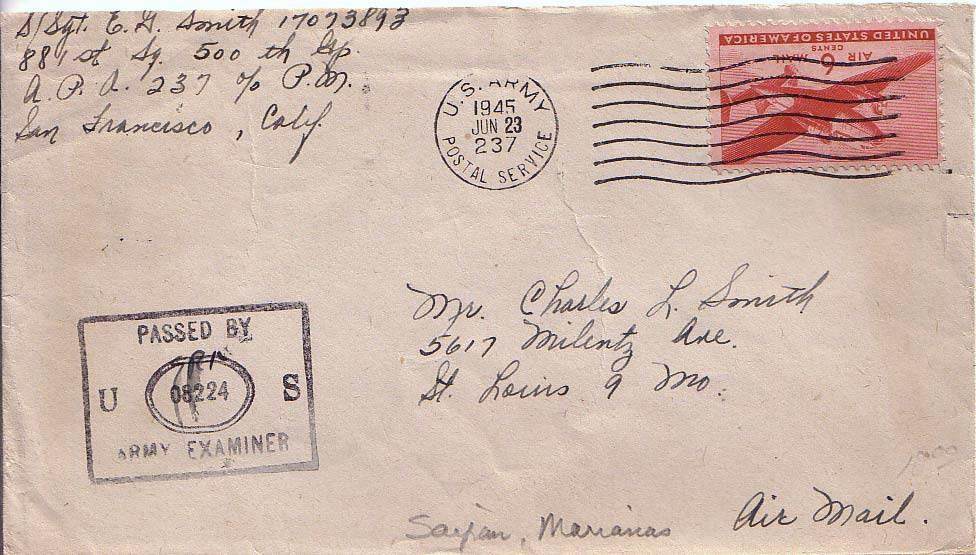 S/Sgt. E. G. Smith 17073893
881 st Sq. 500 th Gp.
A.P.O. 237 % P.M.
San Francisco, Calif.
U.S. ARMY
1945
JUN 23
237
POSTAL SERVICE
UNITED STATES OF AMERICA
AIR 6 MAIL
CENTS
Mr. Charles L. Smith
5617 Milentz Ave.
St. Louis 9 Mo.
PASSED BY
U 08224 S
ARMY EXAMINER
Air Mail.
Saipan, Marianas